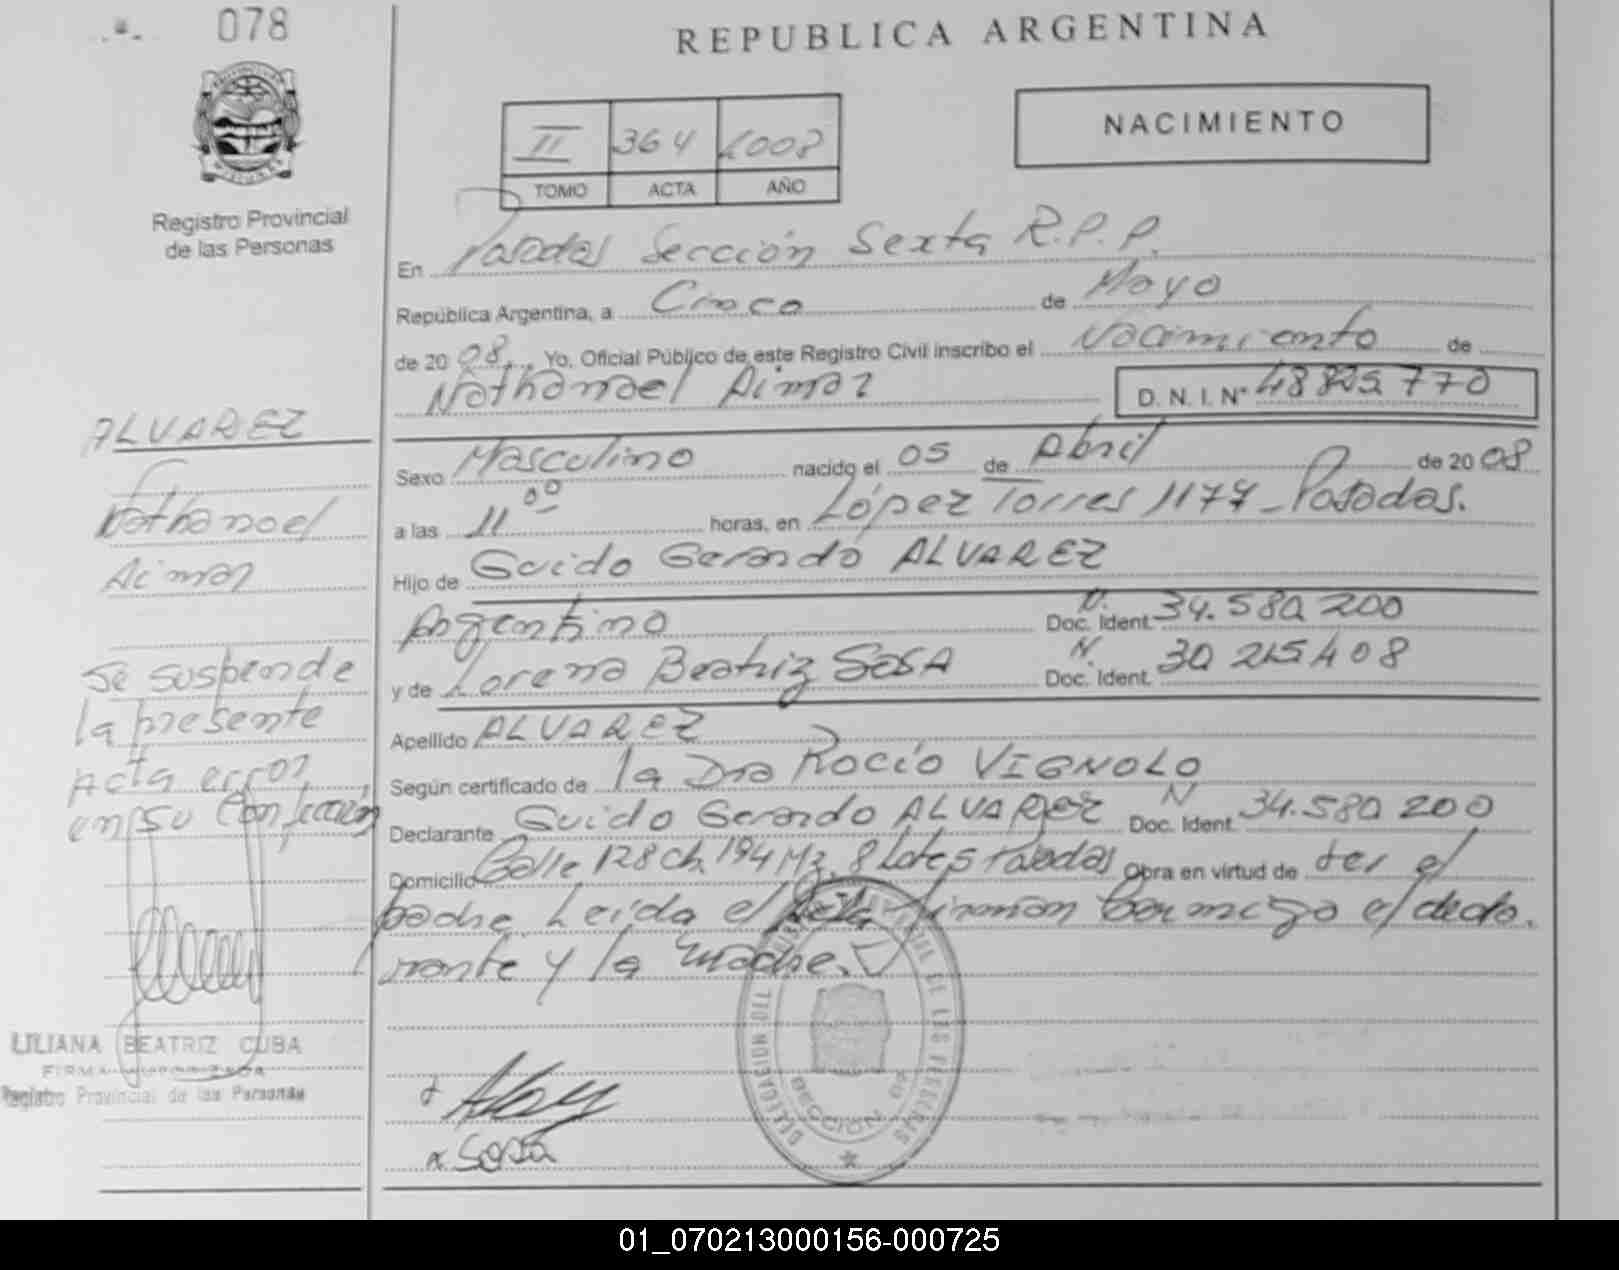 078
REPUBLICA ARGENTINA
NACIMIENTO
II 364 2008
TOMO ACTA AÑO
Registro Provincial
de las Personas
En Posadas Sección Sexta R.P.P.
República Argentina, a Cinco de Mayo
de 2008 Yo, Oficial Público de este Registro Civil inscribo el Nacimiento de
Nathanael Aimar D. N. I. Nº 48825770
ALVAREZ
Nathanael
Aimar
Se suspende
la presente
Acta error
en su Confección
LILIANA BEATRIZ CUBA
FIRMA AUTORIZADA
Registro Provincial de las Personas
Sexo Masculino nacido el 05 de Abril de 2008
a las 11 00 horas, en López Torres 1177 - Posadas.
Hijo de Guido Gerardo ALVAREZ
Argentino Doc. Ident. N. 34.580 200
y de Lorena Beatriz SOSA Doc. Ident. N. 30 215408
Apellido ALVAREZ
Según certificado de la Dra Rocío VIGNOLO
Declarante Guido Gerardo ALVAREZ Doc. Ident. N 34.580 200
Domicilio Calle 128 ch. 194 Mz. 8 Lote 5 Posadas Obra en virtud de ser el
padre. Leida el Acta firman conmigo el decla-
rante y la Madre.
DELEGACION
DE LAS PERSONAS
SECCION 6ª
Sosa
01_070213000156-000725